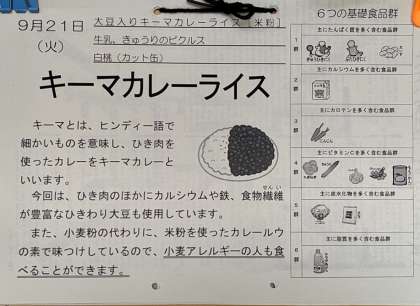 9月21日
(火)
大豆入りキーマカレーライス［米粉］
牛乳、きゅうりのピクルス
白桃（カット缶）
キーマカレーライス
キーマとは、ヒンディー語で
細かいものを意味し、ひき肉
を使ったカレーをキーマカレーと
いいます。
今回は、ひき肉のほかにカルシウムや鉄、食物繊維
せんい
が豊富なひきわり大豆も使用しています。
また、小麦粉の代わりに、米粉を使ったカレールウ
の素で味つけしているので、小麦アレルギーの人も食
べることができます。
6つの基礎食品群
1
群
主にたんぱく質を多く含む食品群
2
群
主にカルシウムを多く含む食品群
3
群
主にカロテンを多く含む食品群
にんじん
4
群
主にビタミンCを多く含む食品群
5
群
主に炭水化物を多く含む食品群
6
群
主に脂質を多く含む食品群